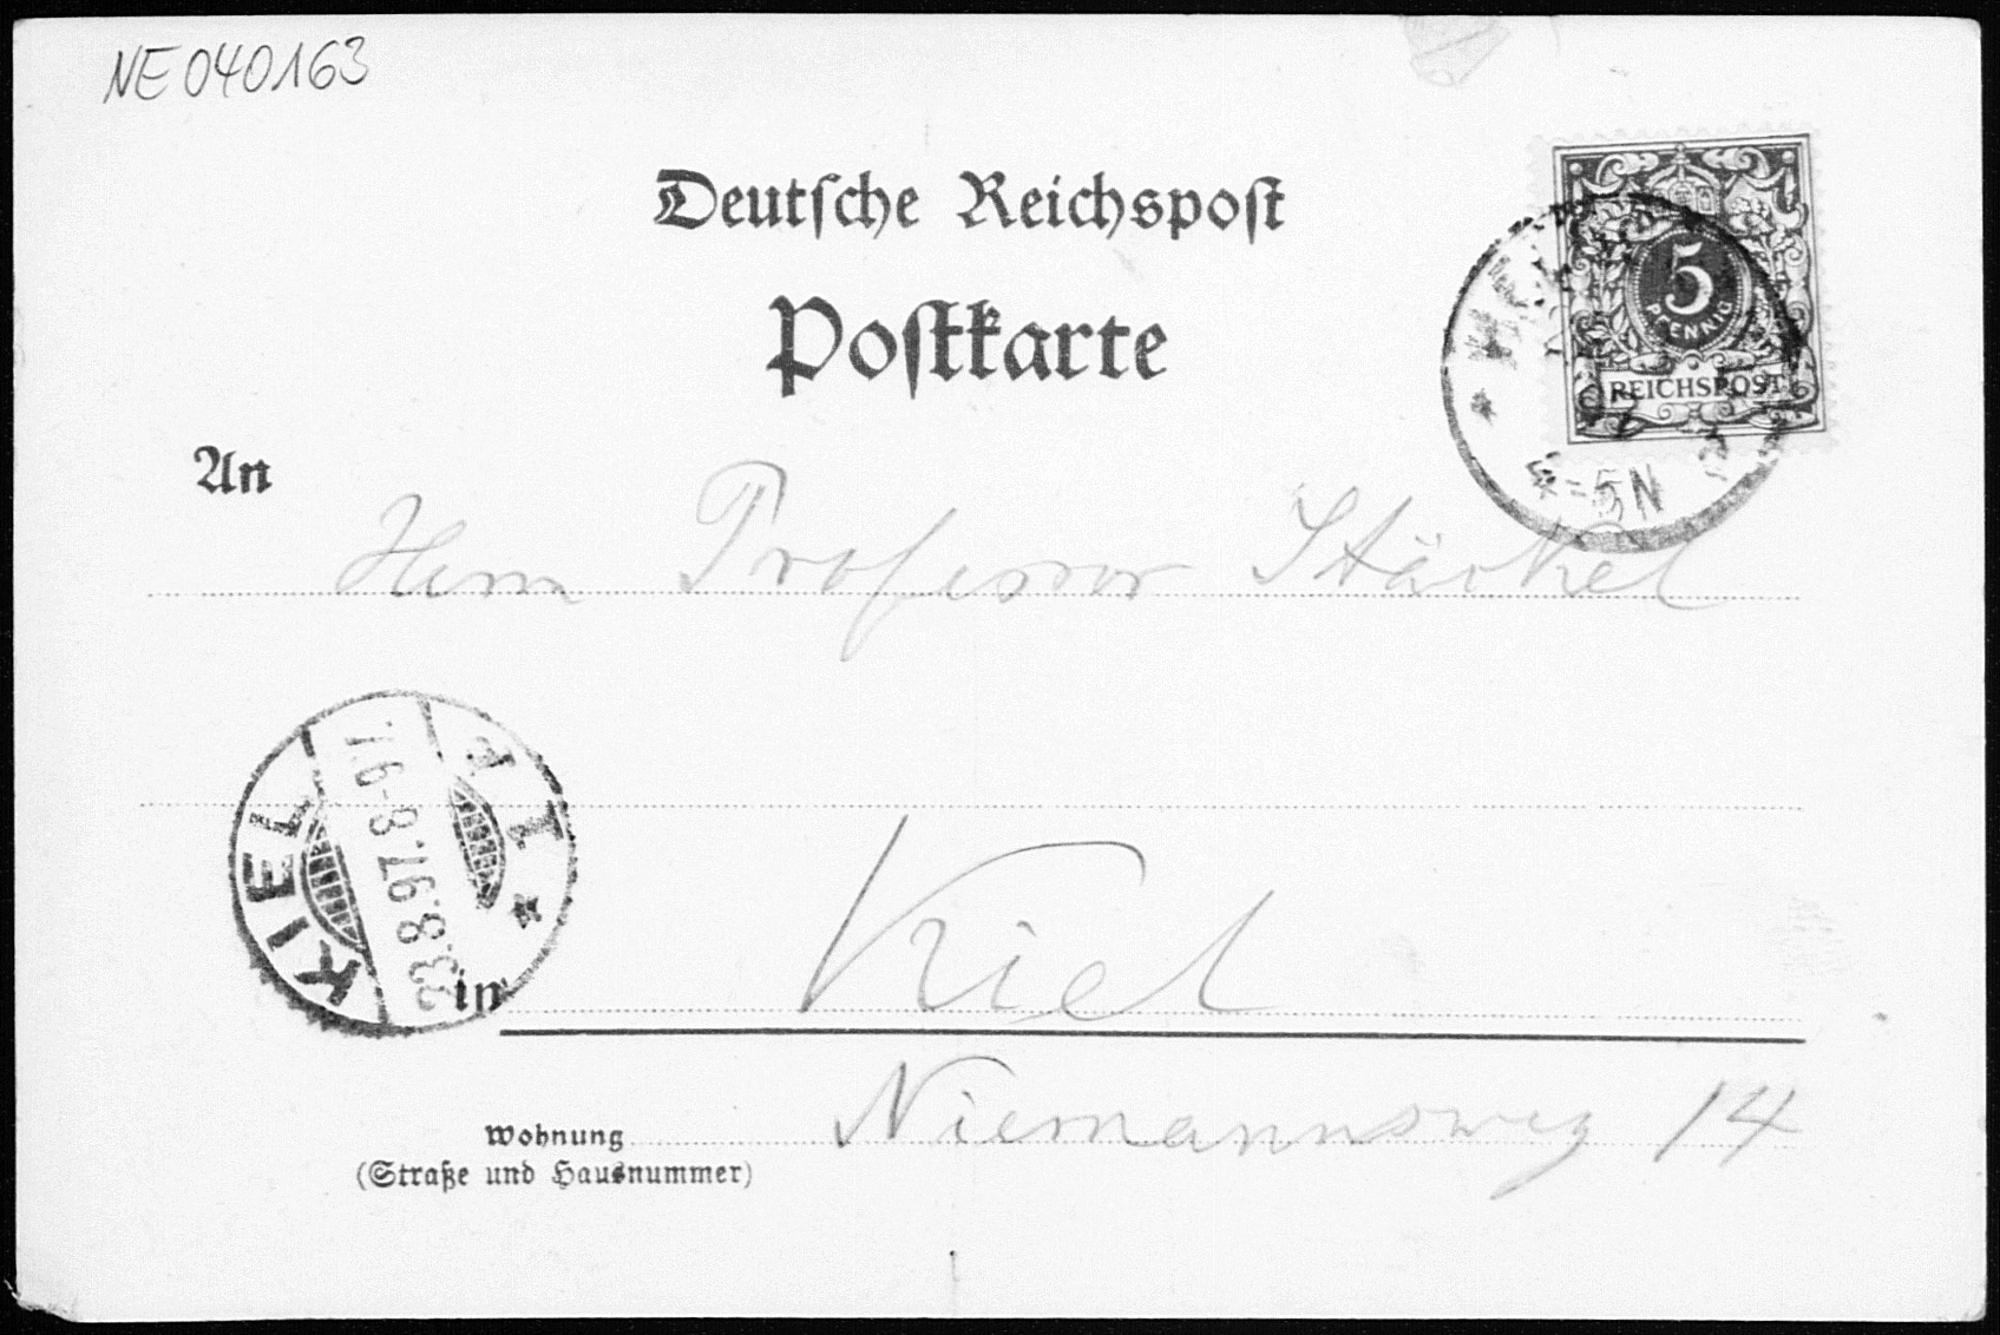 NE040163
Deutsche Reichspost
Postkarte
5
PFENNIG
REICHSPOST
5 N
An
Herrn Professor Stäckel
KIEL
23.8.97. 8-9V.
in Kiel
Wohnung Niemannsweg 14
(Straße und Hausnummer)